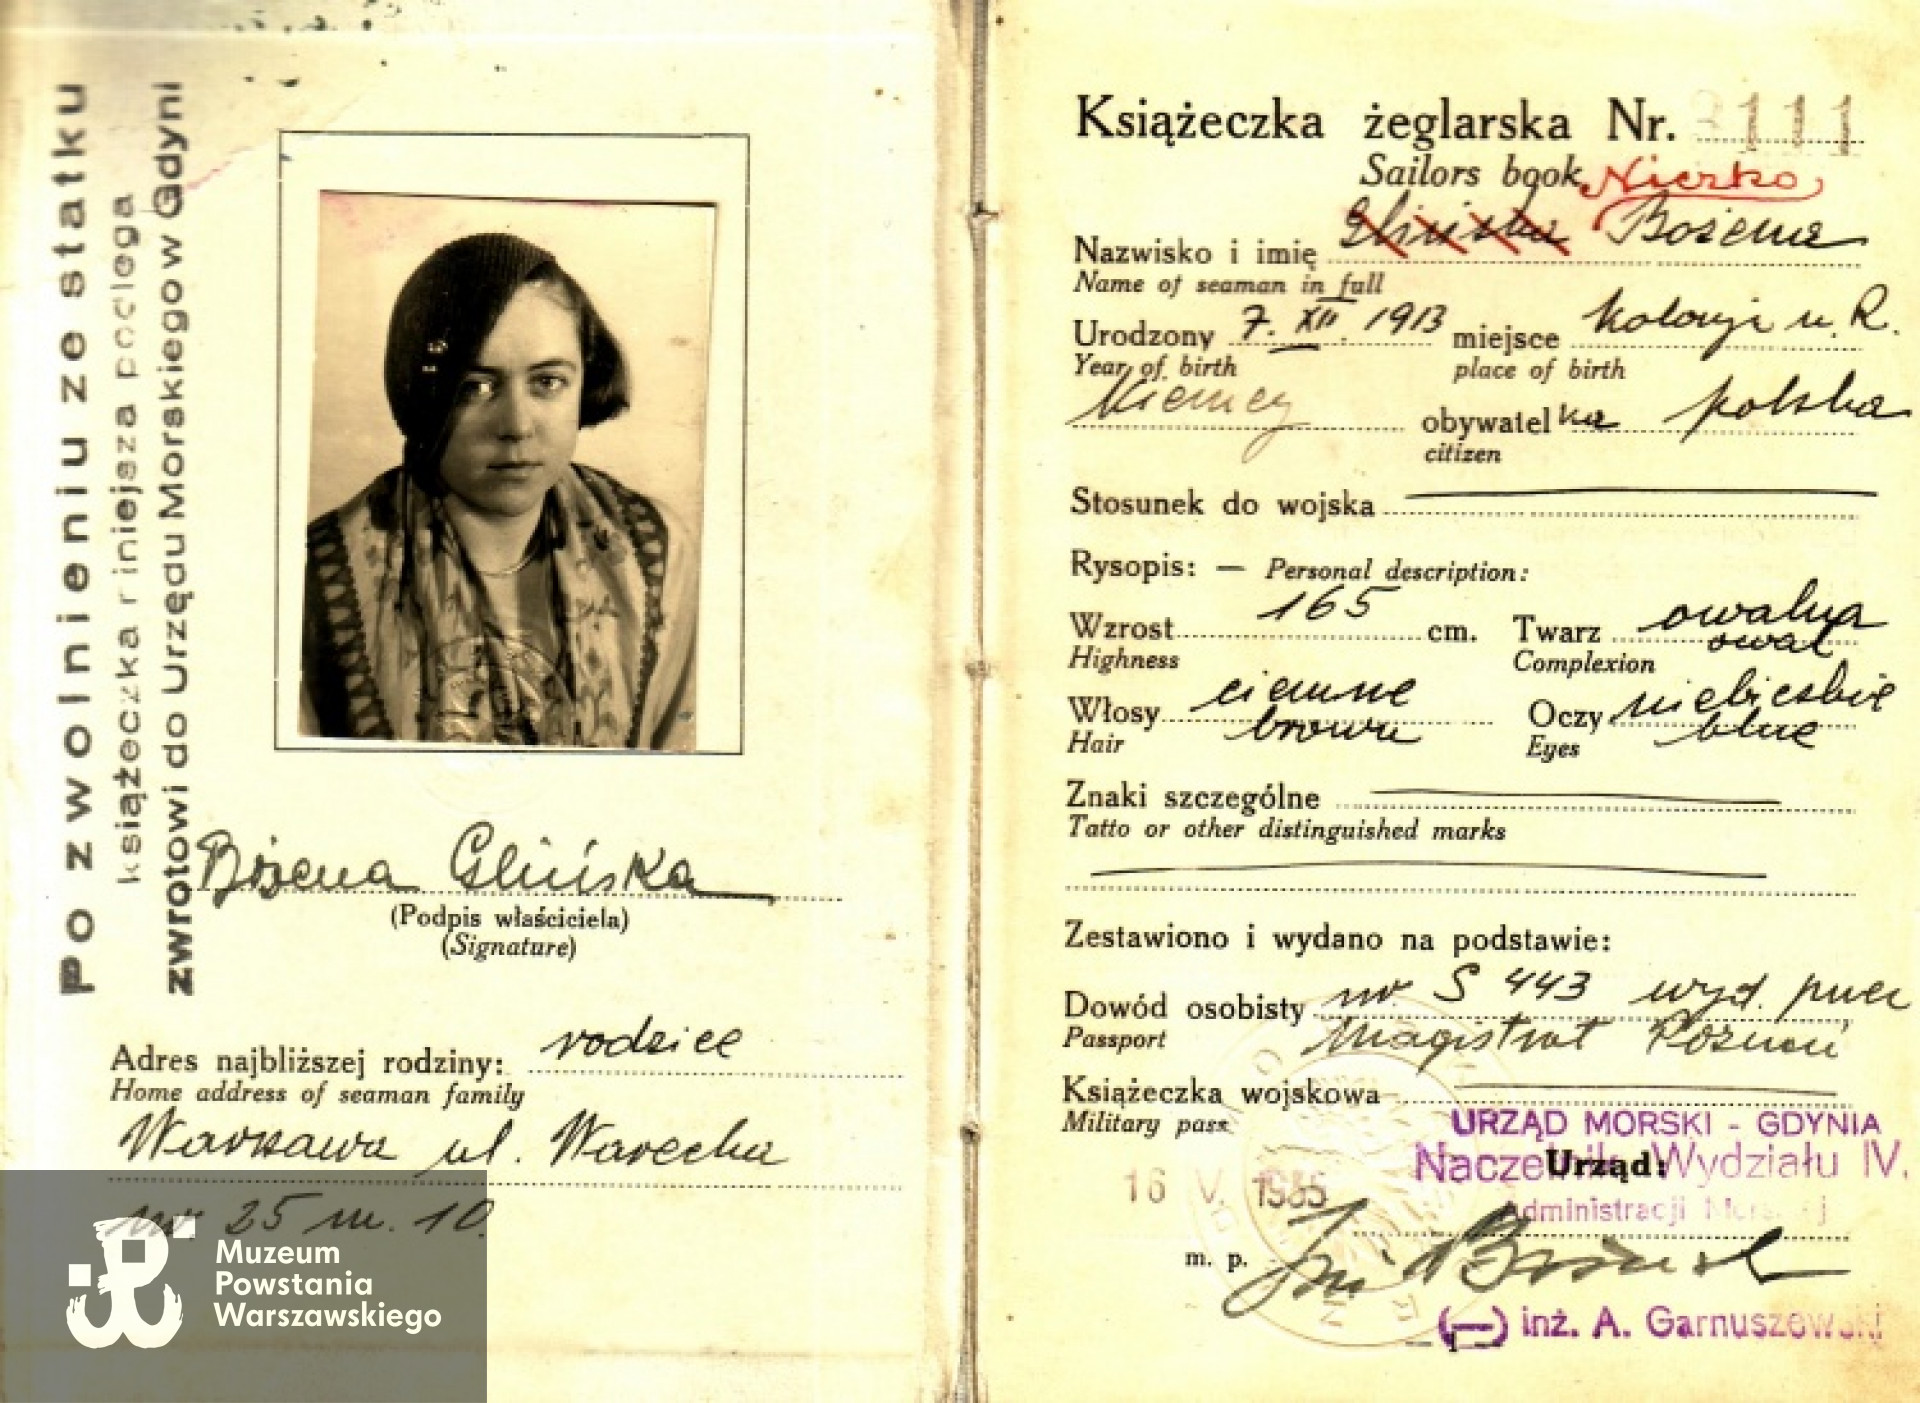 Po zwolnieniu ze statku
książeczka niniejsza podlega
zwrotowi do Urzędu Morskiego w Gdyni
Bożena Glińska
(Podpis właściciela)
(Signature)
Adres najbliższej rodziny: rodzice
Home address of seaman family
Warszawa ul. Warecka
nr 25 m. 10.
Muzeum
Powstania
Warszawskiego
Książeczka żeglarska Nr. 3111
Sailors book Nierko
Nazwisko i imię Glińska Bożena
Name of seaman in full
Urodzony 7. XII. 1913 miejsce Kolonji n. R.
Year of birth place of birth
Niemcy obywatelka polska
citizen
Stosunek do wojska
Rysopis: — Personal description:
Wzrost 165 cm. Twarz owalna
Highness Complexion owal
Włosy ciemne Oczy niebieskie
Hair brown Eyes blue
Znaki szczególne
Tatto or other distinguished marks
Zestawiono i wydano na podstawie:
Dowód osobisty nr S 443 wyd. przez
Passport Magistrat Poznań
Książeczka wojskowa
Military pass
URZĄD MORSKI - GDYNIA
Naczelnik Wydziału IV.
Urząd:
Administracji Morskiej
16 V. 1935
m. p.
(—) inż. A. Garnuszewski